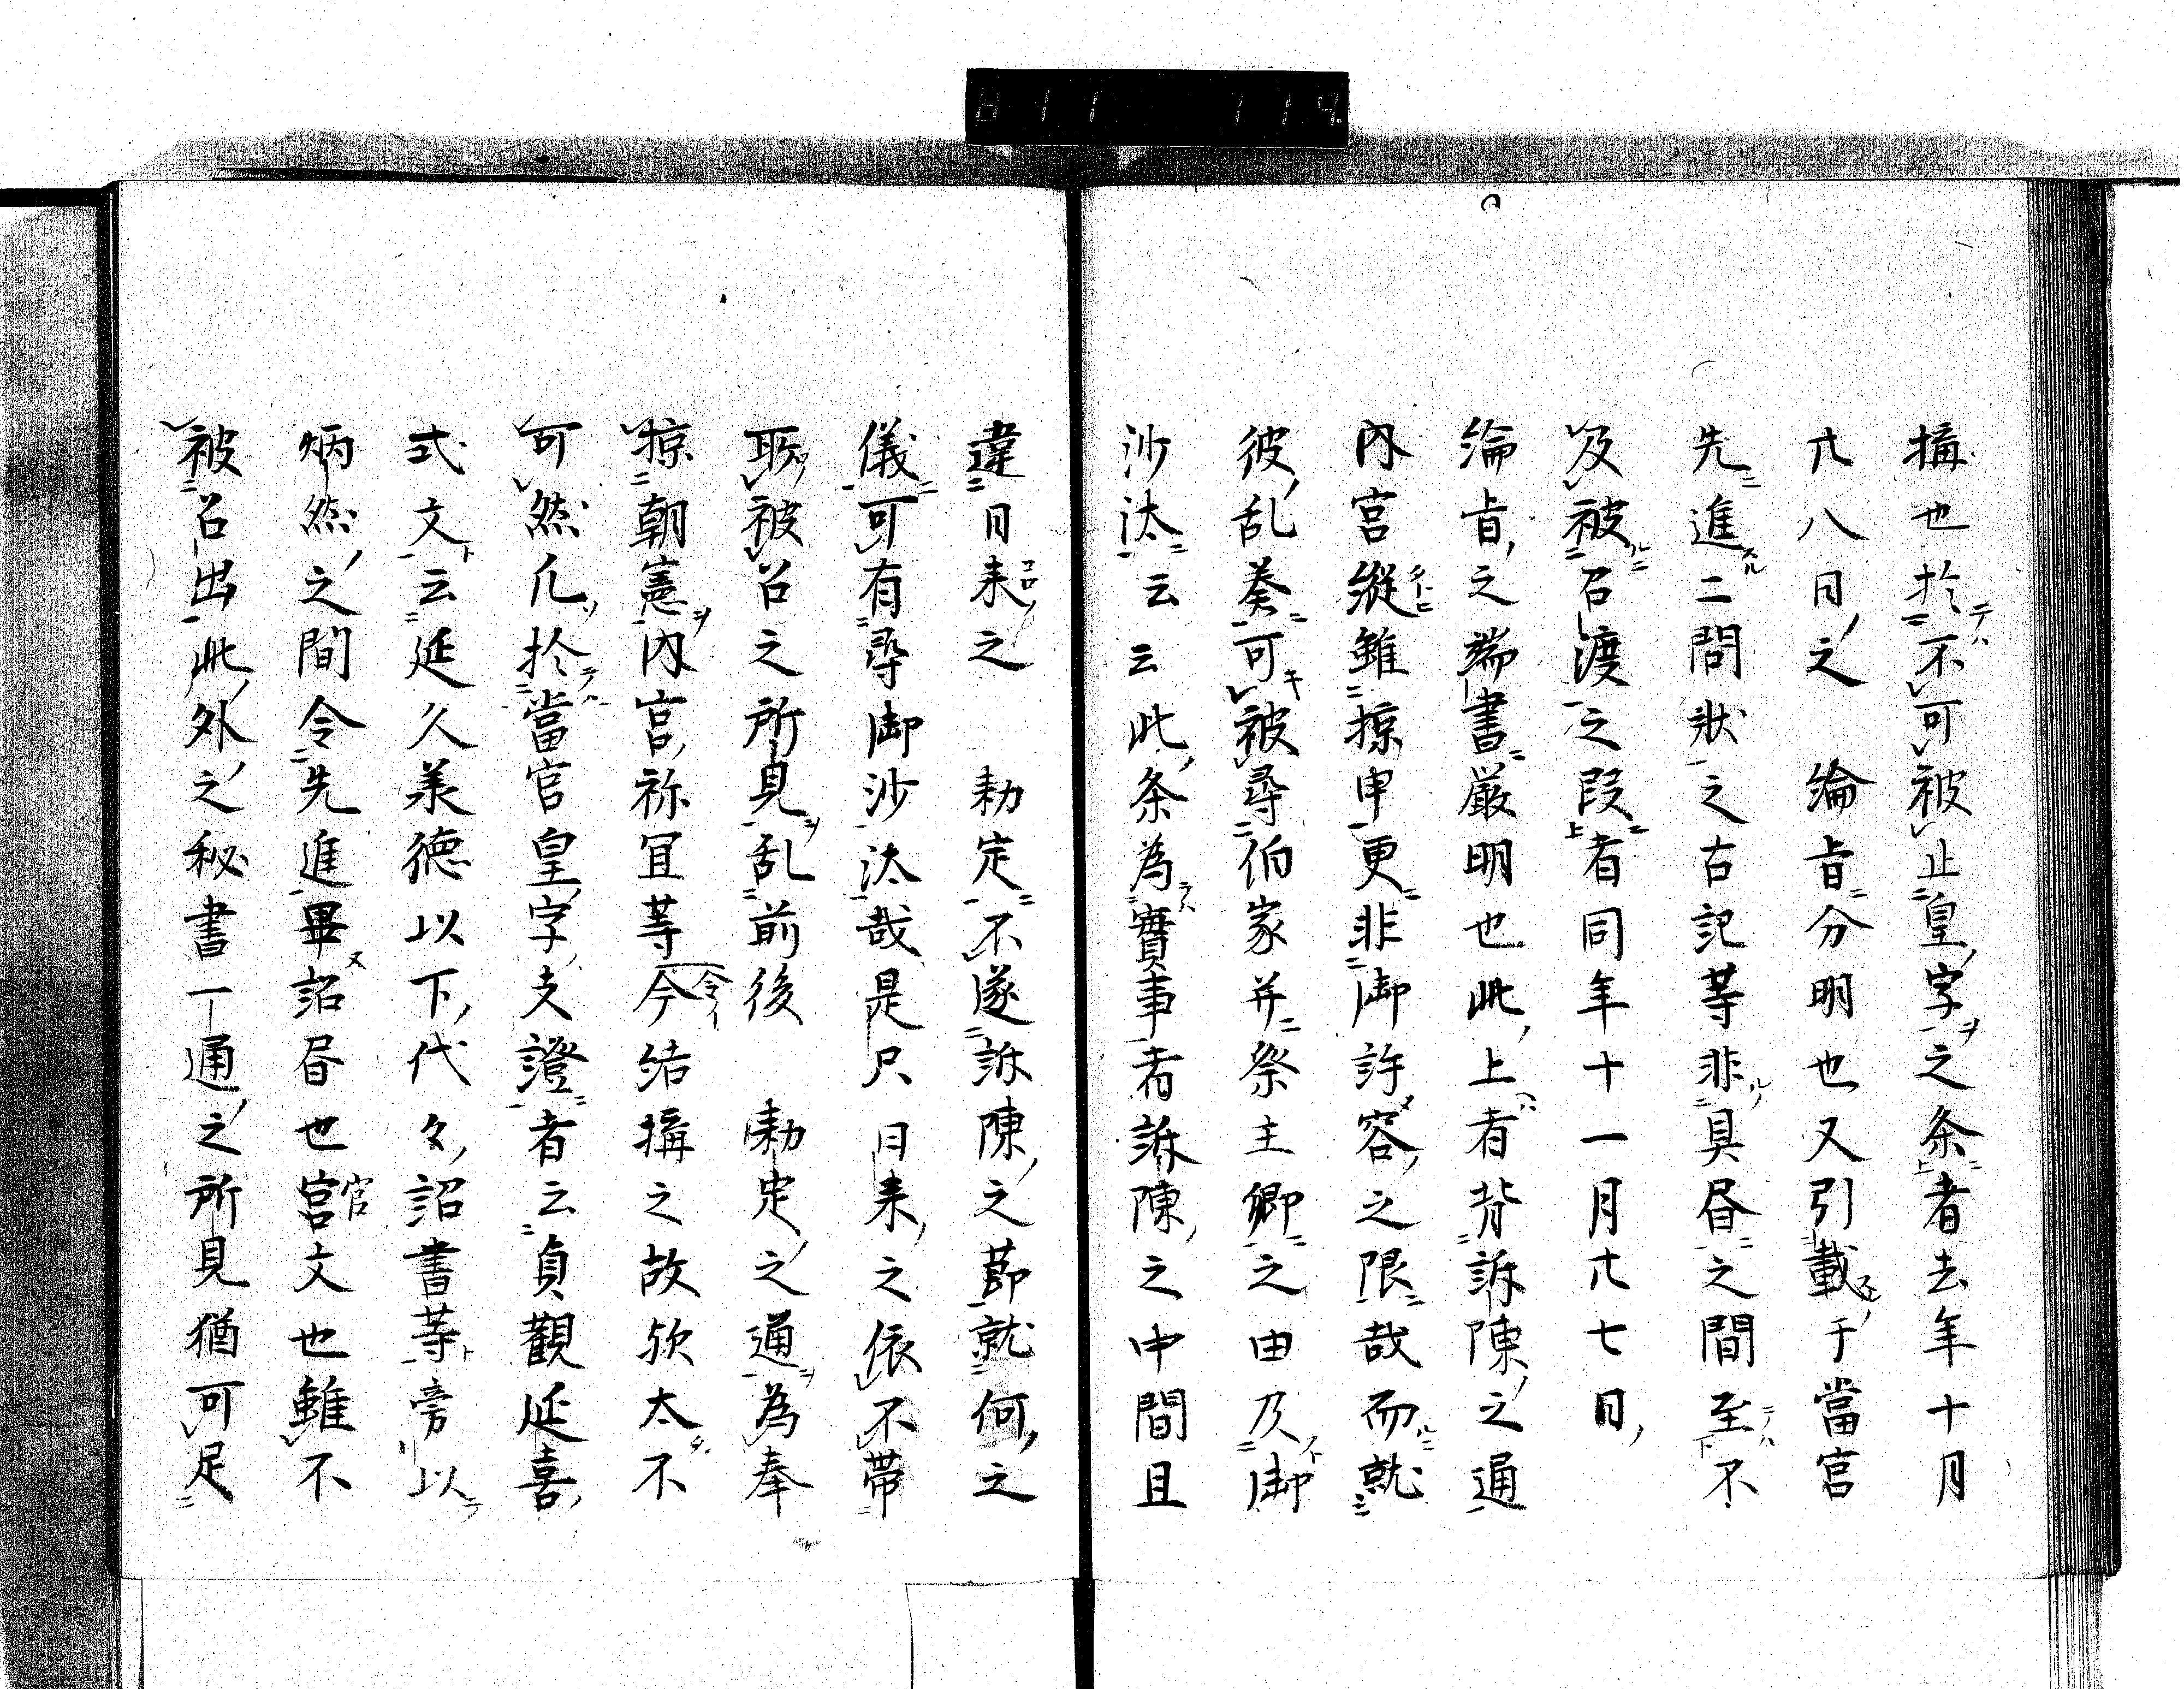 搆也於不可被止皇字之条者去年十月
廿八日之　綸旨分明也又引載于當宮
先進二問状之古記等非具昏之間至不
及被召渡之段者同年十一月廿七日
綸旨之端書厳明也此上者背訴陳之通
内宮縦雖掠申更非御許容之限哉而就
彼乱奏可被尋伯家并祭主卿之由及御
沙汰云云此条為實事者訴陳之中間且
違日来之　勅定不遂訴陳之莭就何之
儀可有尋御沙汰哉是只日来之依不帶
所被召之所見乱前後　勅定之通為奉
掠朝憲内宮祢冝等今結搆之故欤太不
可然凢於當官皇字支證者云貞觀延喜
式文云延久羕德以下代々詔書等旁以
炳然之間令先進畢詔昏也宮文也雖不
被召出此外之秘書一通之所見猶可足